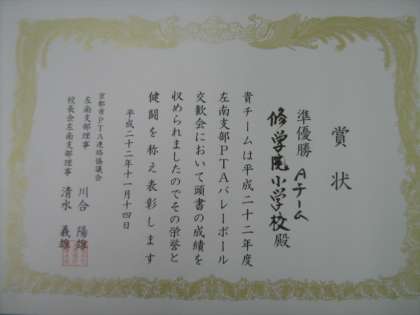 賞状
準優勝 Aチーム
修学院小学校殿
貴チームは平成二十二年度
左南支部PTAバレーボール
交歓会において頭書の成績を
収められましたのでその栄誉と
健闘を称え表彰します
平成二十二年十一月十四日
京都市PTA連絡協議会
左南支部理事 川合 陽雄
校長会左南支部理事 清水 義雄